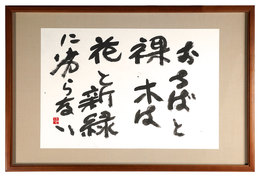 おちばと
裸木は
花と新緑
に劣らない